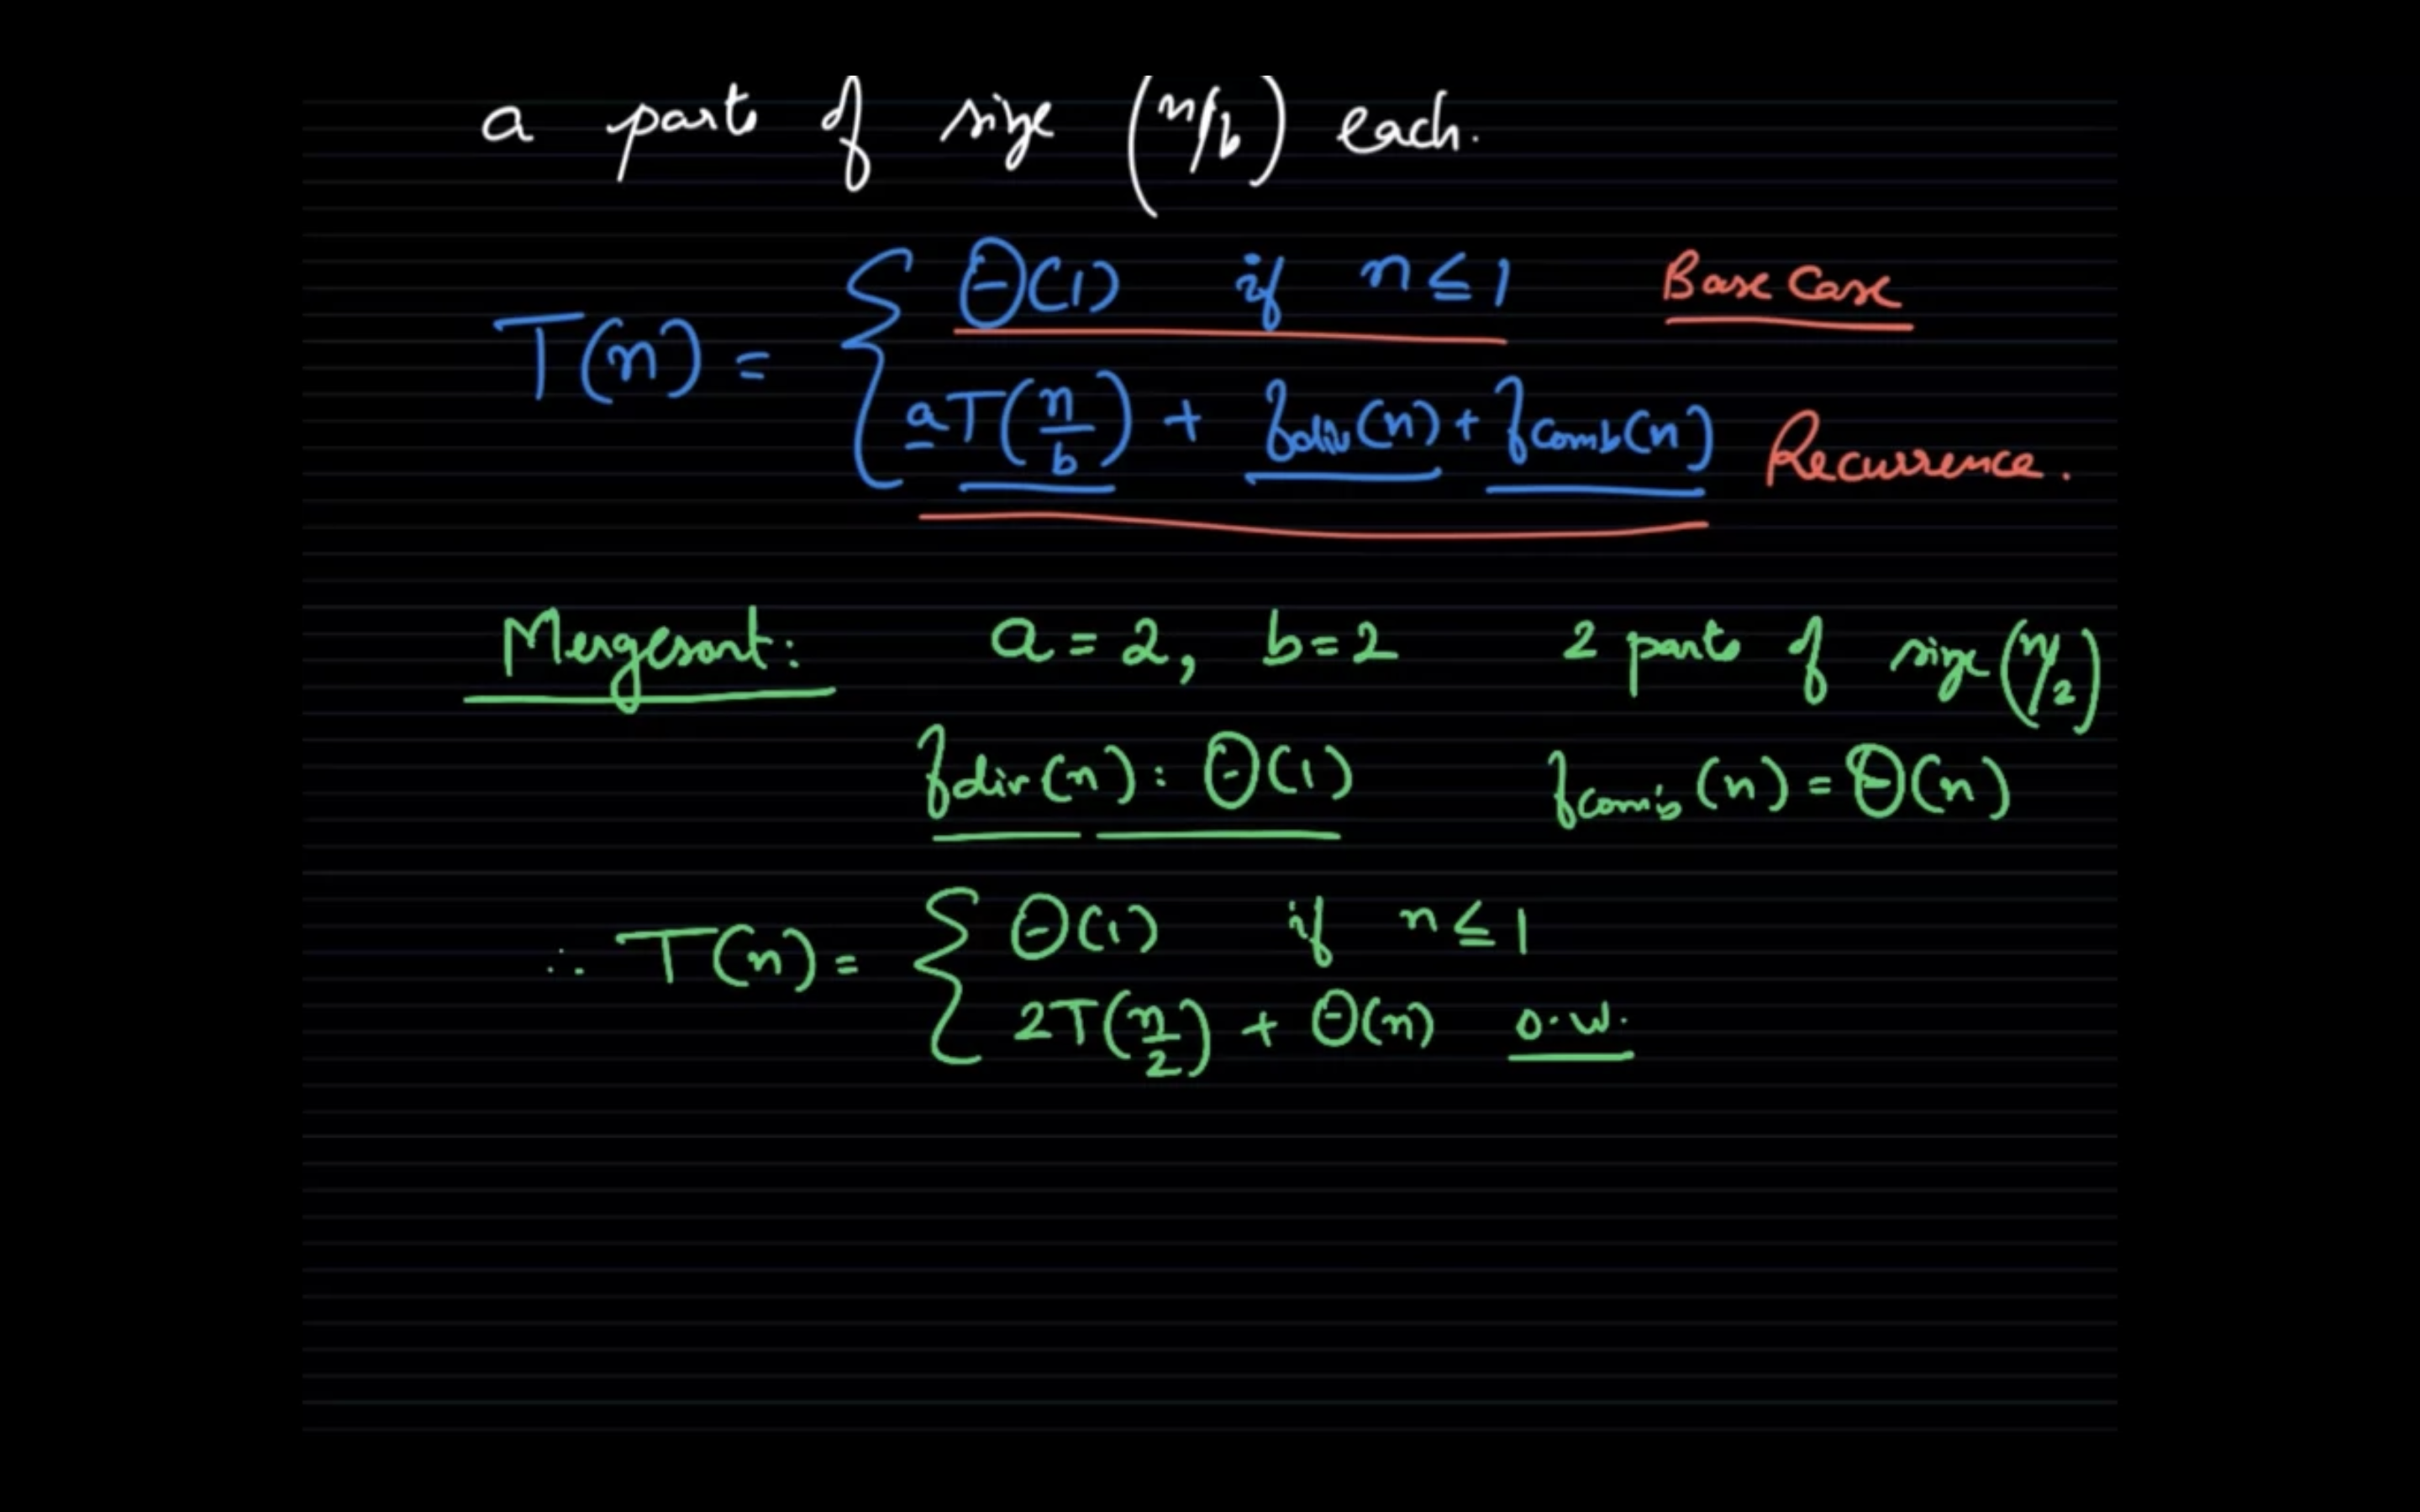 a parts of size (n/b) each.
T(n) = { Θ(1) if n ≤ 1 Base Case
aT(n/b) + fdiv(n) + fcomb(n) Recurrence.
Mergesort: a = 2, b = 2 2 parts of size (n/2)
fdiv(n) : Θ(1) fcomb(n) = Θ(n)
∴ T(n) = { Θ(1) if n ≤ 1
2T(n/2) + Θ(n) o.w.